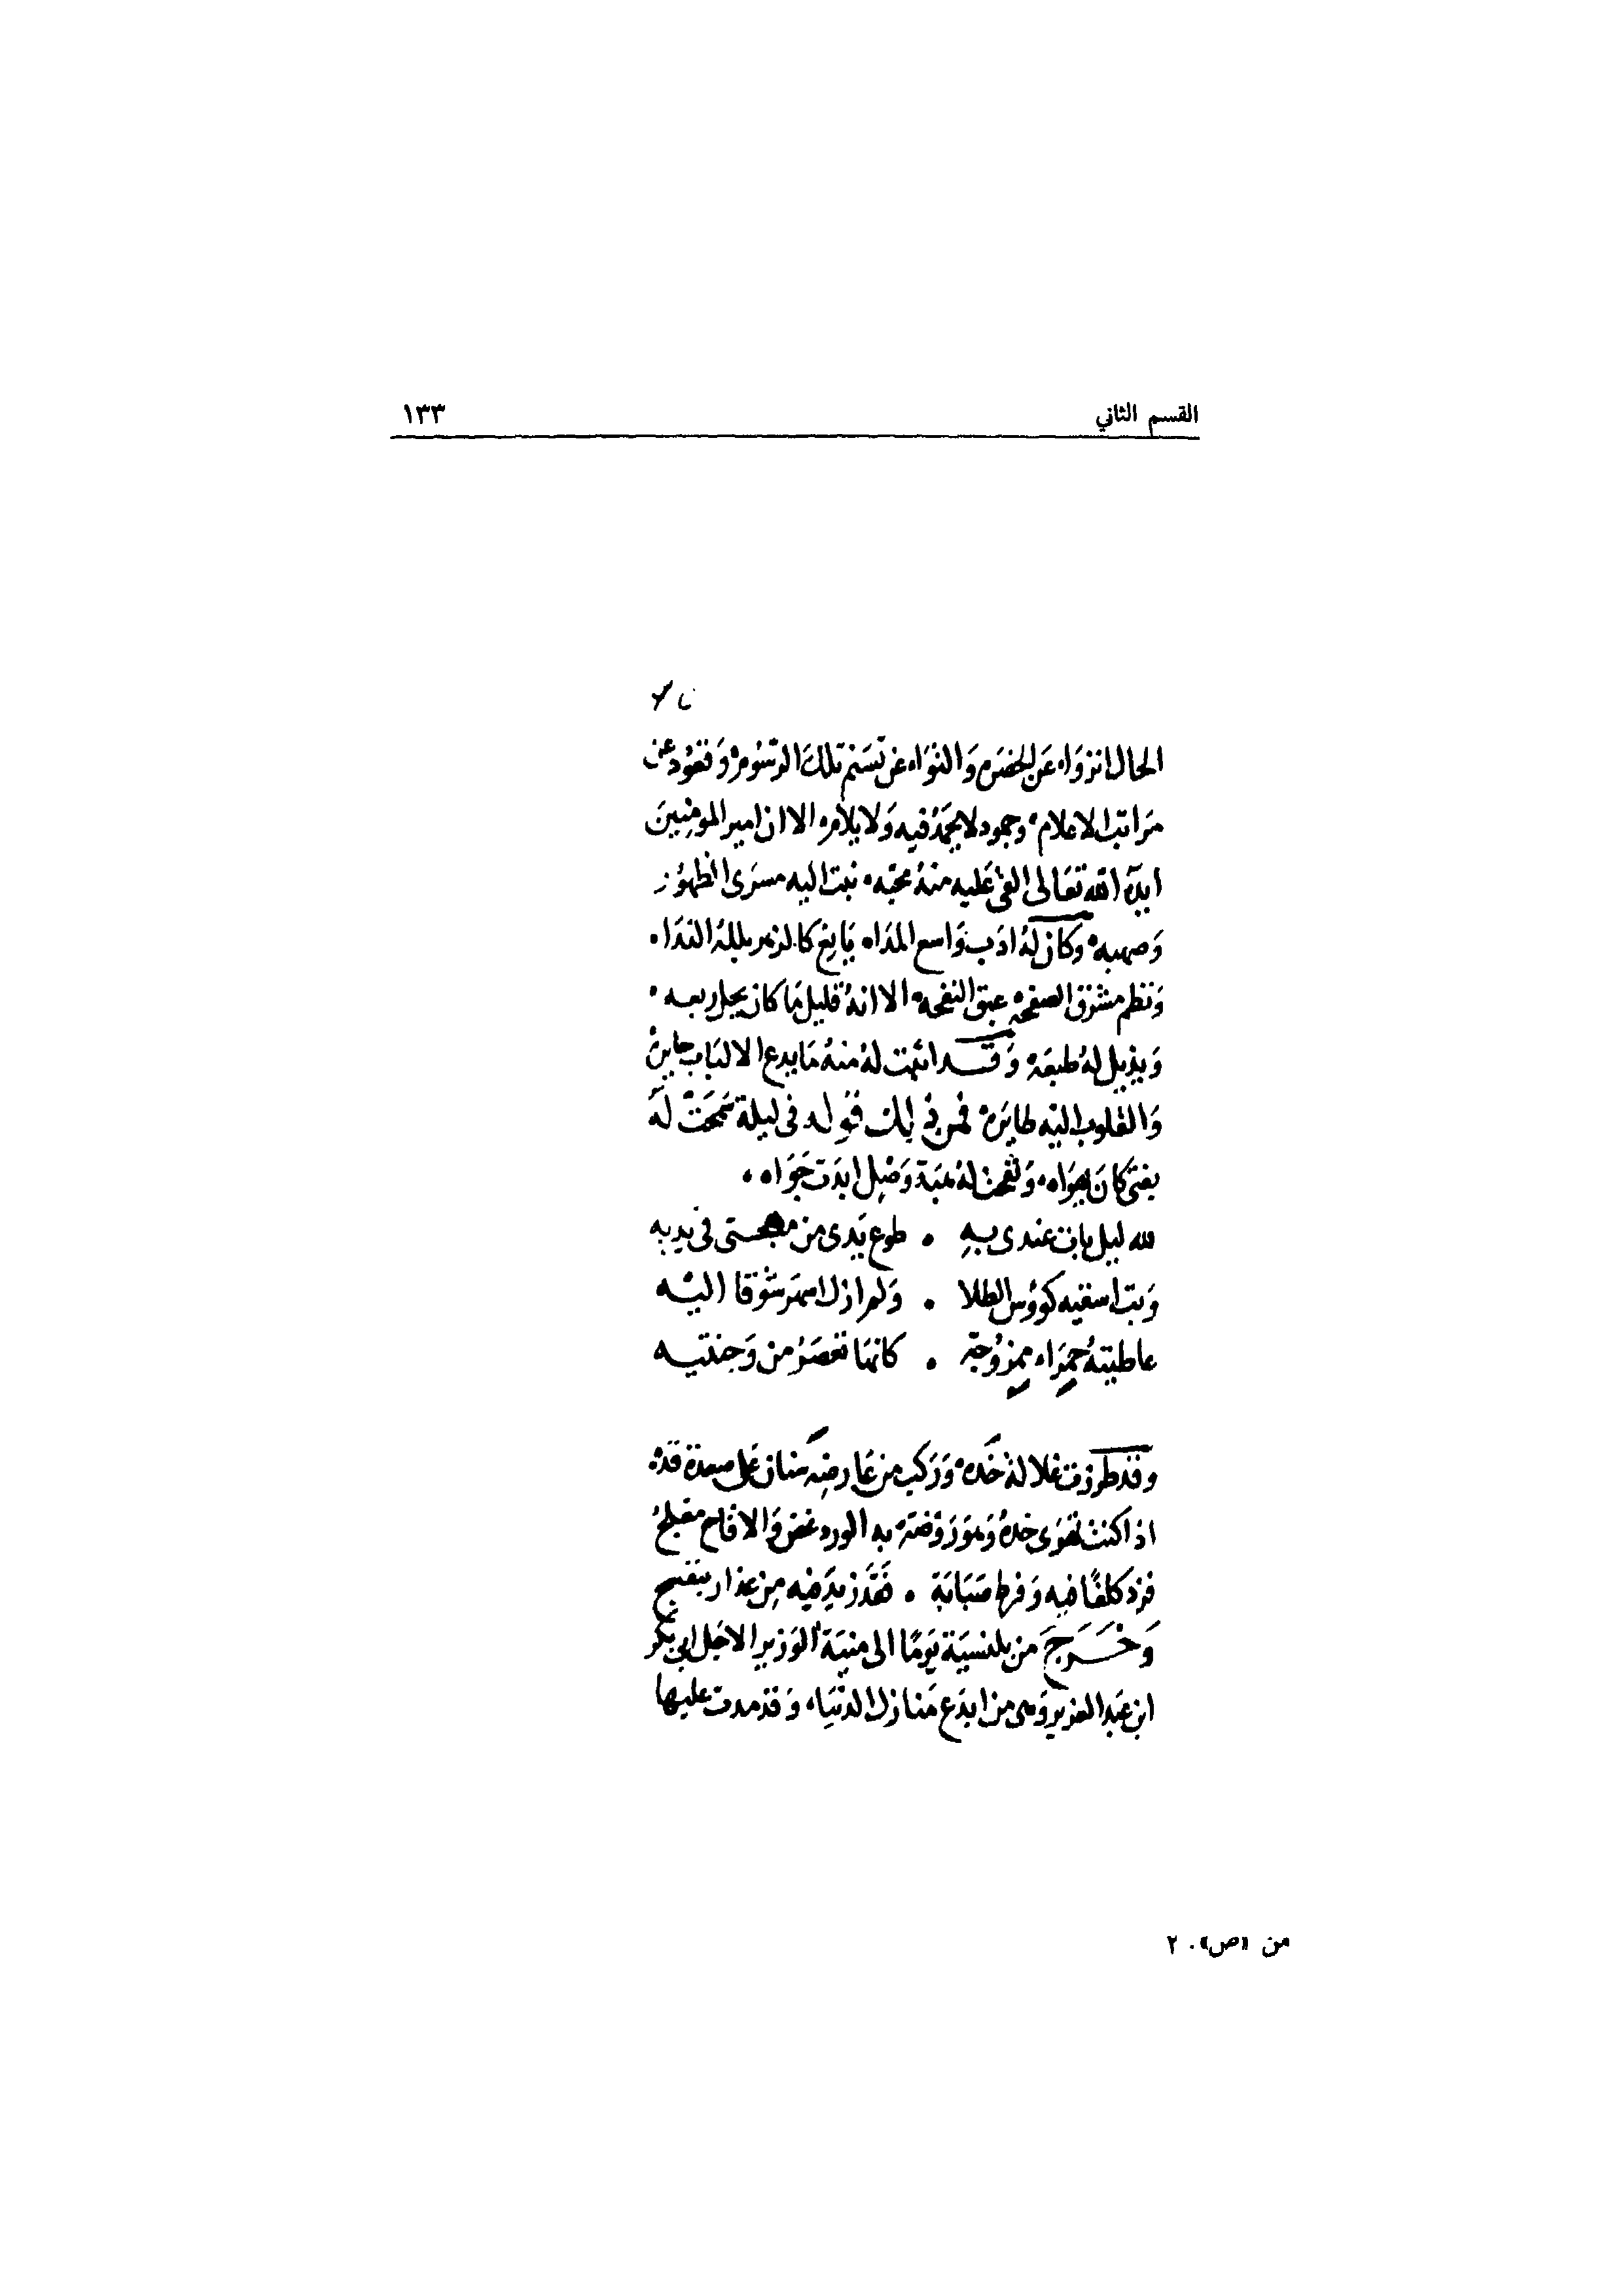 القسم الثاني ١٣٣
الحال انزوَاء عَن الحضَرم وَالتوَاء عَن تَسَنم تلكَ الرّسُوم وَقعُود عن
مَراتب الاعلام وجمود لا يحمَدُ فيه وَلا يلام الا ان امير المومِنِينَ
ايدَهُ الله تعَالى القىَ عَليه منهُ محبّه نبت اليه مسرَى الظهُور
وَصهبه وكَان لهُ ادَب وَاسع المدَاه يَانِع كالزهر بللهُ الندَا
وَنظم مشرق الصفحه عبق النفحه الا انهُ قليل مَا كان يحل ربعه
وَيذيل لهُ طبعَهُ وَقَد اثبت لهُ منهُ مَا يدع الالبَاب حايرة
وَالقلوب اليْه طايرَة فمن ذَلِك قوله فى ليلة سَمَحَتْ لَهُ
بفتىً كانَ يهوَاه وَنفحت لهُ هَبّة وَصْلٍ ابرَدَت جَوَاه
لله ليل بات عندى بهِ • طوع يَدى من مهجتى فى يديه
وَبت اسقيه كؤوس الطلا • وَلم ازل اسهَر شَوقا اليْه
عاطيتهُ حمرَاء ممزوُجَة • كانهَا تعصَرُ من وَجنتيه
وقد طرزت غلالة خَده وَركب من عَارضِه سَنان عَلى صعدة قدهِ
اذا كنت تهوَى خدهُ وَهوَ رَوْضَة به الورد غض وَالاقاح مفلج
فزد كلفًا فيه وَفرط صَبَابَة • فقَد زيدَ فيه مِن عذار بنفسج
وَخَرَجَ من بلنسيَة يَومًا الى منيَة الوَزير الاجَل ابى بَكر
ابن عَبد العزيز وَهى من ابدَع مَنازل الدنيَا، وَقد مدت عليها
من «ص» ٢٠